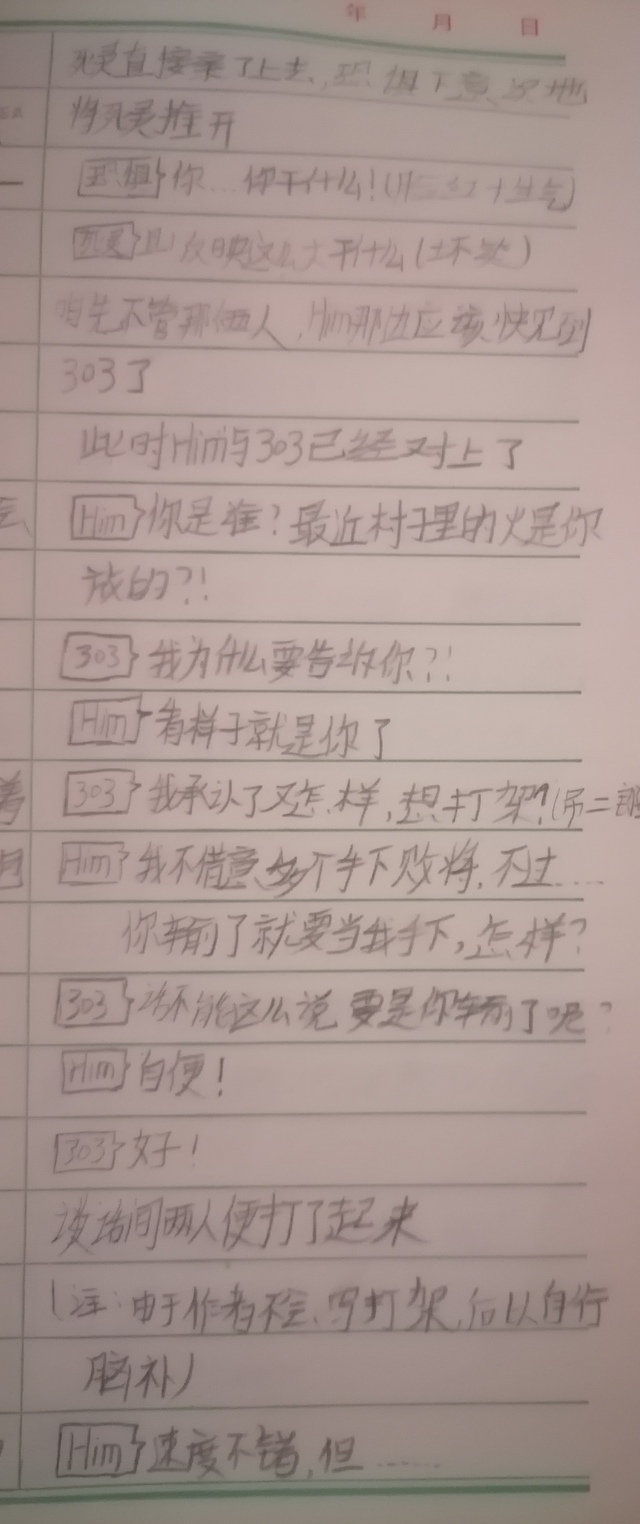 年 月 日
死灵直接亲了上去,恐惧下意识地
将死灵推开
恐惧}你…你干什么!(脸红+生气)
死灵}反映这么大干什么(坏笑)
咱先不管那俩人,Him那边应该快见到
303了
此时Him与303已经对上了
Him}你是谁?最近村子里的火是你
放的?!
303}我为什么要告诉你?!
Him}看样子就是你了
303}我承认了又怎样,想打架?(吊二郎
Him}我不借意多个手下败将,不过……
你输了就要当我手下,怎样?
303}话不能这么说,要是你输了呢?
Him}自便!
303}好!
谈话间两人便打了起来
(注:由于作者不会写打架,后以自行
脑补)
Him}速度不错,但……